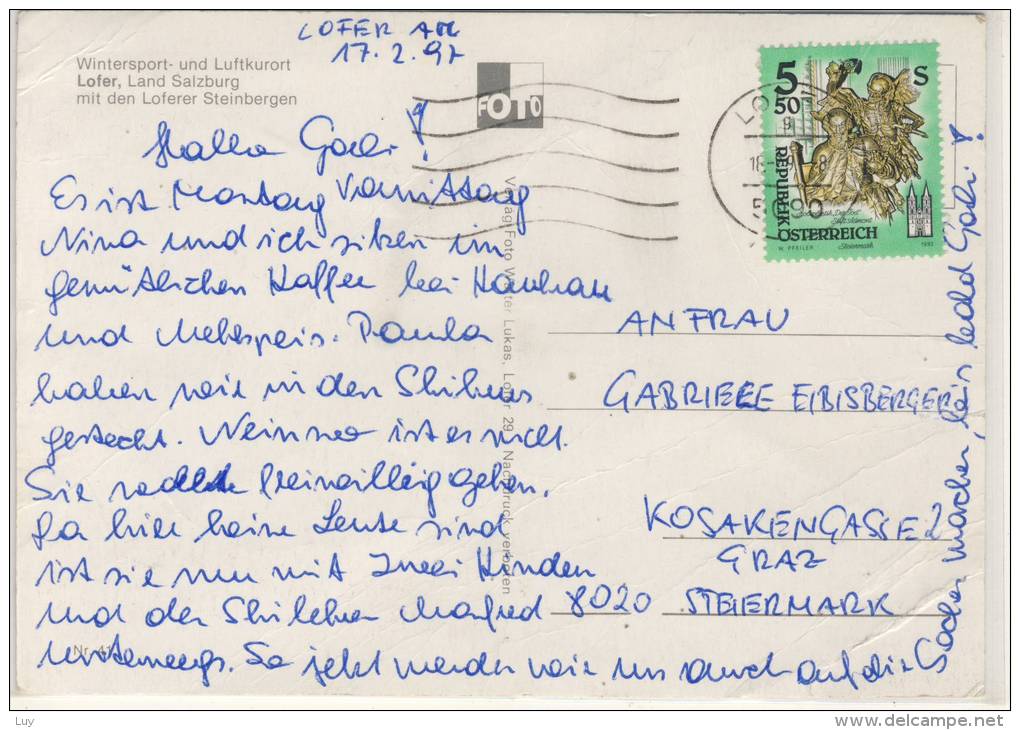 LOFER AM
17.2.97
Wintersport- und Luftkurort
Lofer, Land Salzburg
mit den Loferer Steinbergen
FOTO
5 50 S
REPUBLIK
ÖSTERREICH
W. PFEILER
Steiermark
1993
Hallo Gabi!
Es ist Montag Vormittag
Nina und ich sitzen im
gemütlichen Kaffee bei Kakao
und Mehlspeis. Paula
haben wir in den Skikurs
gesteckt. Weinen ist es nicht.
Sie wollte freiwillig gehen.
Da hier keine Leute sind
ist sie nur mit zwei Kindern
und der Skilehrer Manfred
unterwegs. So jetzt werden wir uns auch auf die
Socken machen, bis bald Gabi!
Verlag: Foto Walter Lukas, Lofer 29, Nachdruck verboten
AN FRAU
GABRIELE EIBISBERGER
KOSAKENGASSE 2
GRAZ
8020 STEIERMARK
Nr. 41
Luy
delcampe.net